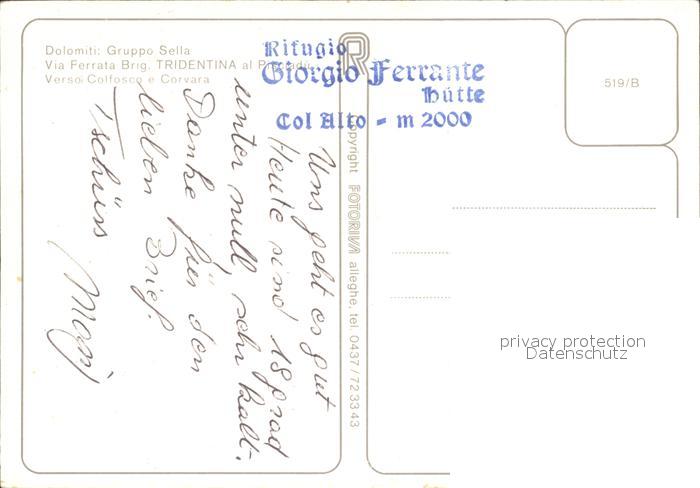 Dolomiti: Gruppo Sella
Via Ferrata Brig. TRIDENTINA al
Verso Colfosco e Corvara
Rifugio
Giorgio Ferrante
Hütte
Col Alto - m 2000
519/B
Uns geht es gut
Heute sind 18 grad
unter null, sehr kalt.
Danke für den
lieben Brief.
Tschüss
copyright FOTORIVA alleghe, tel. 0437/723343
privacy protection
Datenschutz